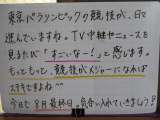 東京パラリンピックの競技が、日々
進んでいますね。TV中継やニュースを
見るたび「すごいなー！」と感じます。
もっともっと、競技がメジャーになれば
ステキですよね〜
今日も8月最終日、気合い入れていきましょう！